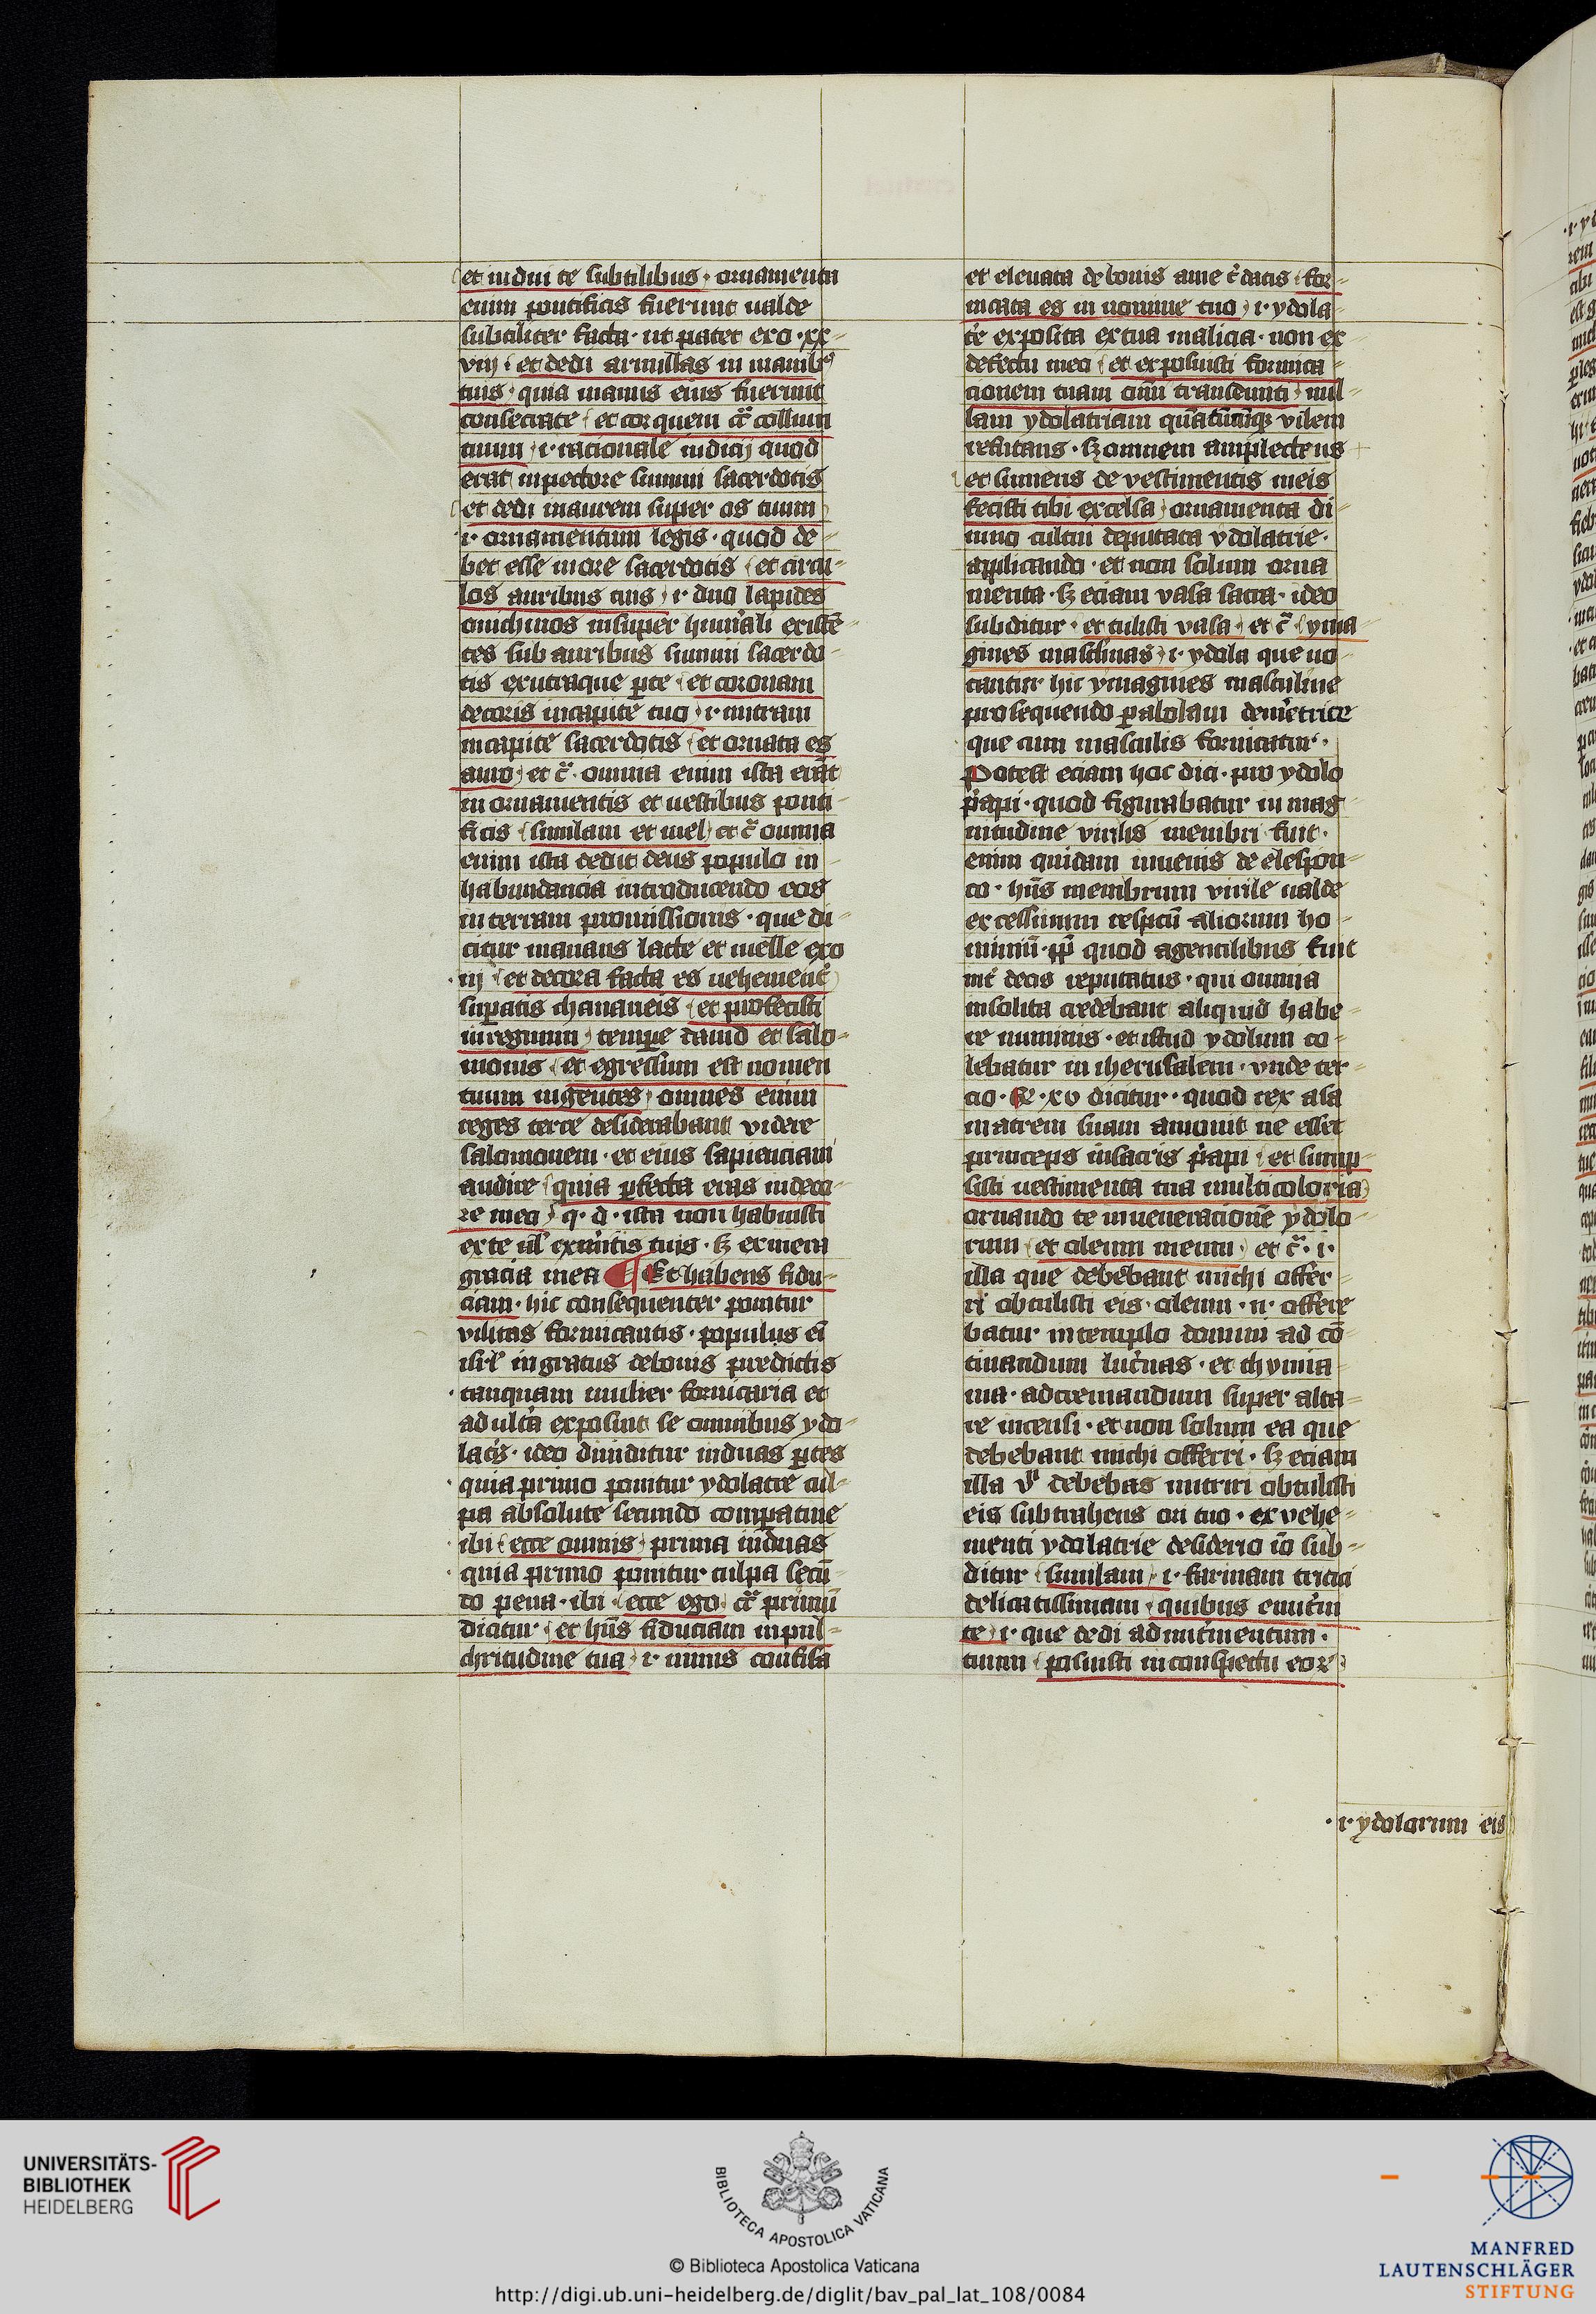 et indui te subtilibus · ornamenta
enim pontificis fuerunt ualde
subtiliter facta · ut patet exo · xx
viij · et dedi armillas in manibꝰ
tuis · quia manus eius fuerunt
consecrate et torquem cr̄ collum
tuum · i · racionale iudicij quod
erat in pectore summi sacerdotis
et dedi inaurem super os tuum
· i · ornamentum legis · quod de
bet esse in ore sacerdotis et circu
los auribus tuis · i · duo lapides
onichinos insuper humͬali existē
tes sub auribus summi sacerdo
tis exutraque ꝑte et coronam
decoris incapite tuo · i · mitram
incapite sacerdotis et ornata es
auro · et c̄ · omnia enim ista erāt
in ornamentis et uestibus ponti
ficis similam et mel et c̄ omnia
enim ista dedit deus populo in
habundancia introducendo eos
in terram promissionis · que di
citur manans lacte et melle exo
· iij · et decora facta es uehementͬ
suꝑatis chananeis et profecisti
in regnum tempͬe dauid et salo
monis et egressum est nomen
tuum in gentes · omnes enim
reges terre desiderabant videre
salomonem · et eius sapienciam
audire quia ꝑfecta eras in deco
re meo q · d · ista non habuisti
ex te ul̄ ex mͬitis tuis · sꝫ ex mera
gracia mea ¶ Et habens fidu
ciam · hic consequenter ponitur
vilitas fornicantis · populus em̄
isrl̄ ingratus de bonis predictis
· tanquam mulier fornicaria et
adultͬa exposuit se omnibus ydo
latͬs · ideo diuiditur induas ꝑtes
· quia primo ponitur ydolatre cul
pa absolute secundo compͬatiue
· ibi ecce omnis prima in duas
· quia primo ponitur culpa secū
do pena · ibi ecce ego cr̄ primū
dicitur et hn̄s fiduciam in pul
chritudine tua · i · nimis confisa
et eleuata de bonis a me tͬ datis for
nicata es in nomine tuo · i · ydola
tͬe exposita ex tua malicia · non ex
defectu meo et exposuisti fornica
cionem tuam cuiͣ transeunti nul
lam ydolatriam quātūcūqꝫ vilem
refutans · sꝫ omnem amplectens
et sumens de vestimentis meis
fecisti tibi excelsa ornamenta di
uino cultui deputata ydolatrie ·
applicando · et non solum orna
menta · sꝫ eciam vasa sacra · ideo
subditur · et tulisti vasa · et c̄ yma
gines masclinas · i · ydola que uo
cantur hic ymagines masculine
prosequendo ꝑabolam de mͬetrice
que cum masculis fornicatur ·
Potest eciam hoc dici · pro ydolo
pͥapi · quod figurabatur in mag
nitudine virilis membri fuit ·
enim quidam iuuenis de elespon
to · hn̄s membrum virile ualde
excessiuum respcū aliorum ho
minū · ꝓpͭ quod agentilibus fuit
intͬ deos reputatus · qui omnia
insolita credebant aliquid habe
re numinis · et istud ydolum co
lebatur in iherusalem · vnde ter
cio · Re · xv dicitur · quod rex asa
matrem suam amouit ne esset
princeps in sacris pͥapi et sump
sisti uestimenta tua multicoloria
ornando te in ueneracionē ydolo
rum et oleum meum · et c̄ · i ·
illa que debebant michi offer
ri obtulisti eis · oleum · n · offere
batur in templo domini ad cō
tinuandum lucͬnas · et thymia
ma · ad cremandum super alta
re incensi · et non solum ea que
debebant michi offerri · sꝫ eciam
illa vn̄ debebas nutriri obtulisti
eis subtrahens ori tuo · ex vehe
menti ydolatrie desiderio iō sub
ditur similam · i · farinam tritici
delicatissimam quibus enutͬiui
te · i · que dedi ad nutͬmentum ·
tuum posuisti in conspectu eoꝝ
· i · ydolorum eis
UNIVERSITÄTS-
BIBLIOTHEK
HEIDELBERG
BIBLIOTECA APOSTOLICA VATICANA
© Biblioteca Apostolica Vaticana
http://digi.ub.uni-heidelberg.de/diglit/bav_pal_lat_108/0084
MANFRED
LAUTENSCHLÄGER
STIFTUNG